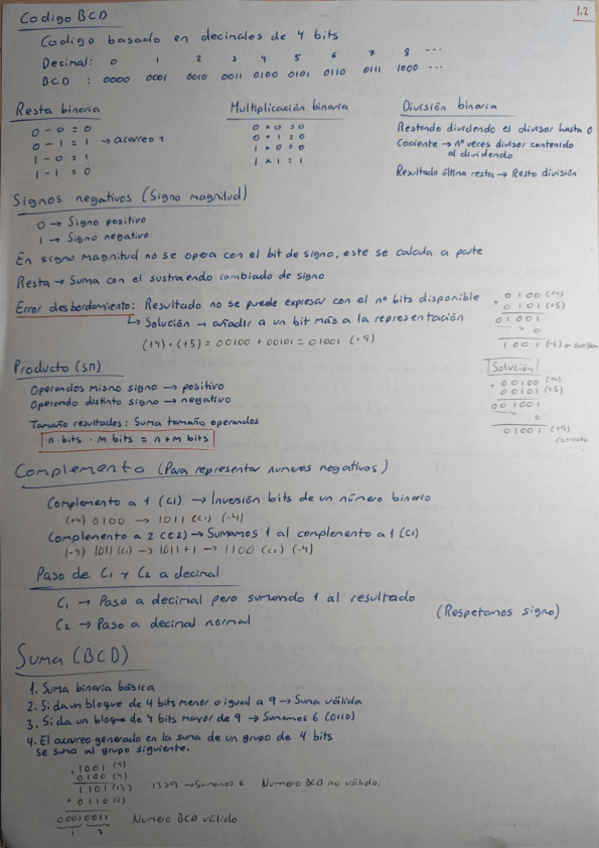 1.2
Codigo BCD
Codigo basado en decimales de 4 bits
Decimal: 0 1 2 3 4 5 6 7 8 ...
BCD : 0000 0001 0010 0011 0100 0101 0110 0111 1000 ...
Resta binaria
0 - 0 = 0
0 - 1 = 1 → acarreo 1
1 - 0 = 1
1 - 1 = 0
Multiplicación binaria
0 * 0 = 0
0 * 1 = 0
1 * 0 = 0
1 * 1 = 1
División binaria
Restando dividendo el divisor hasta 0
Cociente → nº veces divisor contenido
al dividendo
Resultado última resta → Resto división
Signos negativos (Signo magnitud)
0 → Signo positivo
1 → Signo negativo
En signo magnitud no se opera con el bit de signo, este se calcula a parte
Resta → Suma con el sustraendo cambiado de signo
Error desbordamiento: Resultado no se puede expresar con el nº bits disponible
↳ Solución → añadir a un bit más a la representación
(+4) + (+5) = 00100 + 00101 = 01001 (+9)
0100 (+4)
+ 0101 (+5)
01001
→ 0
1001
Producto (SM)
Operandos mismo signo → positivo
Operando distinto signo → negativo
Tamaño resultados: Suma tamaño operandos
n bits · m bits = n + m bits
Solución
+ 00100 (+4)
00101 (+5)
001001
→ 0
01001 (+9)
correcto
Complemento (Para representar numeros negativos)
Complemento a 1 (C1) → Inversión bits de un número binario
(+4) 0100 → 1011 (C1) (-4)
Complemento a 2 (C2) → Sumamos 1 al complemento a 1 (C1)
(-4) 1011 (C1) → 1011 + 1 → 1100 (C2) (-4)
Paso de C1 y C2 a decimal
C1 → Paso a decimal pero sumando 1 al resultado
C2 → Paso a decimal normal
(Respetamos signo)
Suma (BCD)
1. Suma binaria básica
2. Si da un bloque de 4 bits menor o igual a 9 → Suma válida
3. Si da un bloque de 4 bits mayor de 9 → Sumamos 6 (0110)
4. El acarreo generado en la suma de un grupo de 4 bits
se suma al grupo siguiente.
+ 1001 (9)
0100 (4)
1101 (13) 13>9 → Sumamos 6 Numero BCD no válido.
+ 0110
00010011 Numero BCD válido
1 3